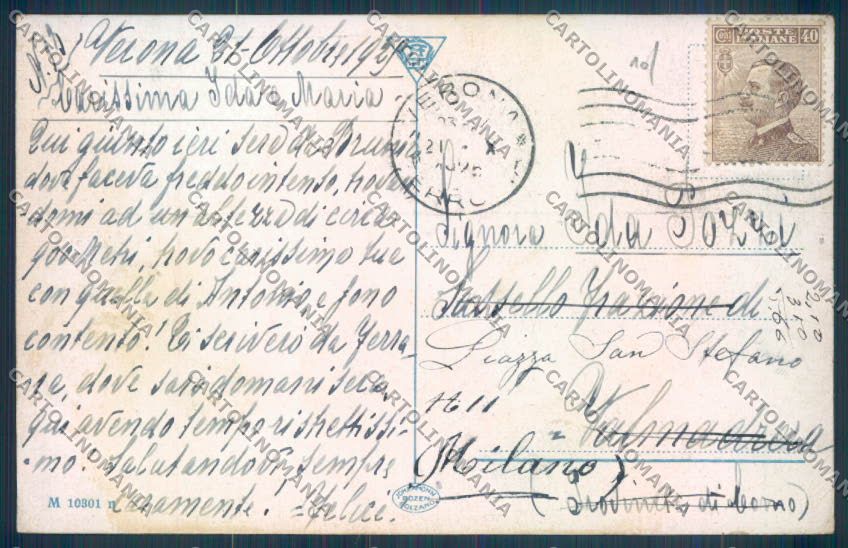 Verona 21-Ottobre 192
Carissima Ida e Maria
Qui giunto ieri sera da Brunico
dove faceva freddo intenso, trovan
domi ad un altezza di circa
900 Metri, trovo carissima tue
con quella di Antonio e sono
contento! Ti scriverò da Ferra-
ra, dove sarò domani sera,
qui avendo tempo ristrettissi-
mo. Salutandovi sempre
caramente. = Felice.
M 10301
JOH. AMONN
BOZEN
BOLZANO
POSTE
ITALIANE
40
VERONA
FERROVIA
Signora Ida Pozzi
Sassello Frazione di
Piazza San Stefano
N 11
= Valmadrera
(Milano)
(Provincia di Como)
CARTOLINOMANIA